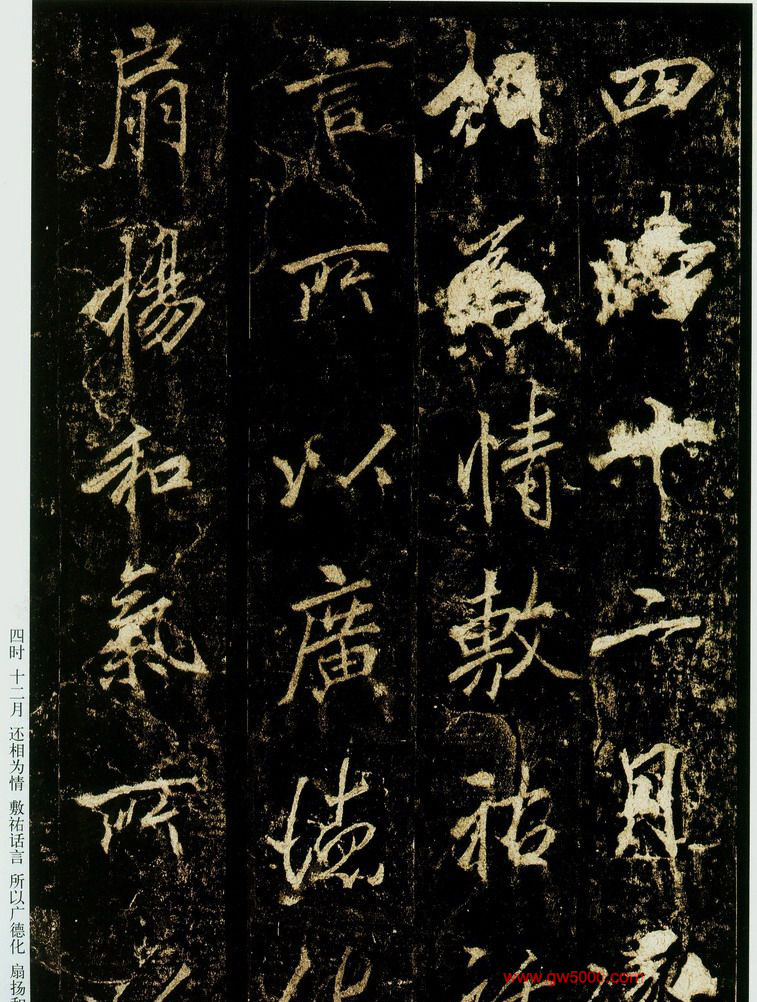 四時十二月還
相為情敷祐話
言所以廣德化
扇揚和氣所以
四时 十二月 还相为情 敷祐话言 所以广德化 扇扬和
www.gw5000.com